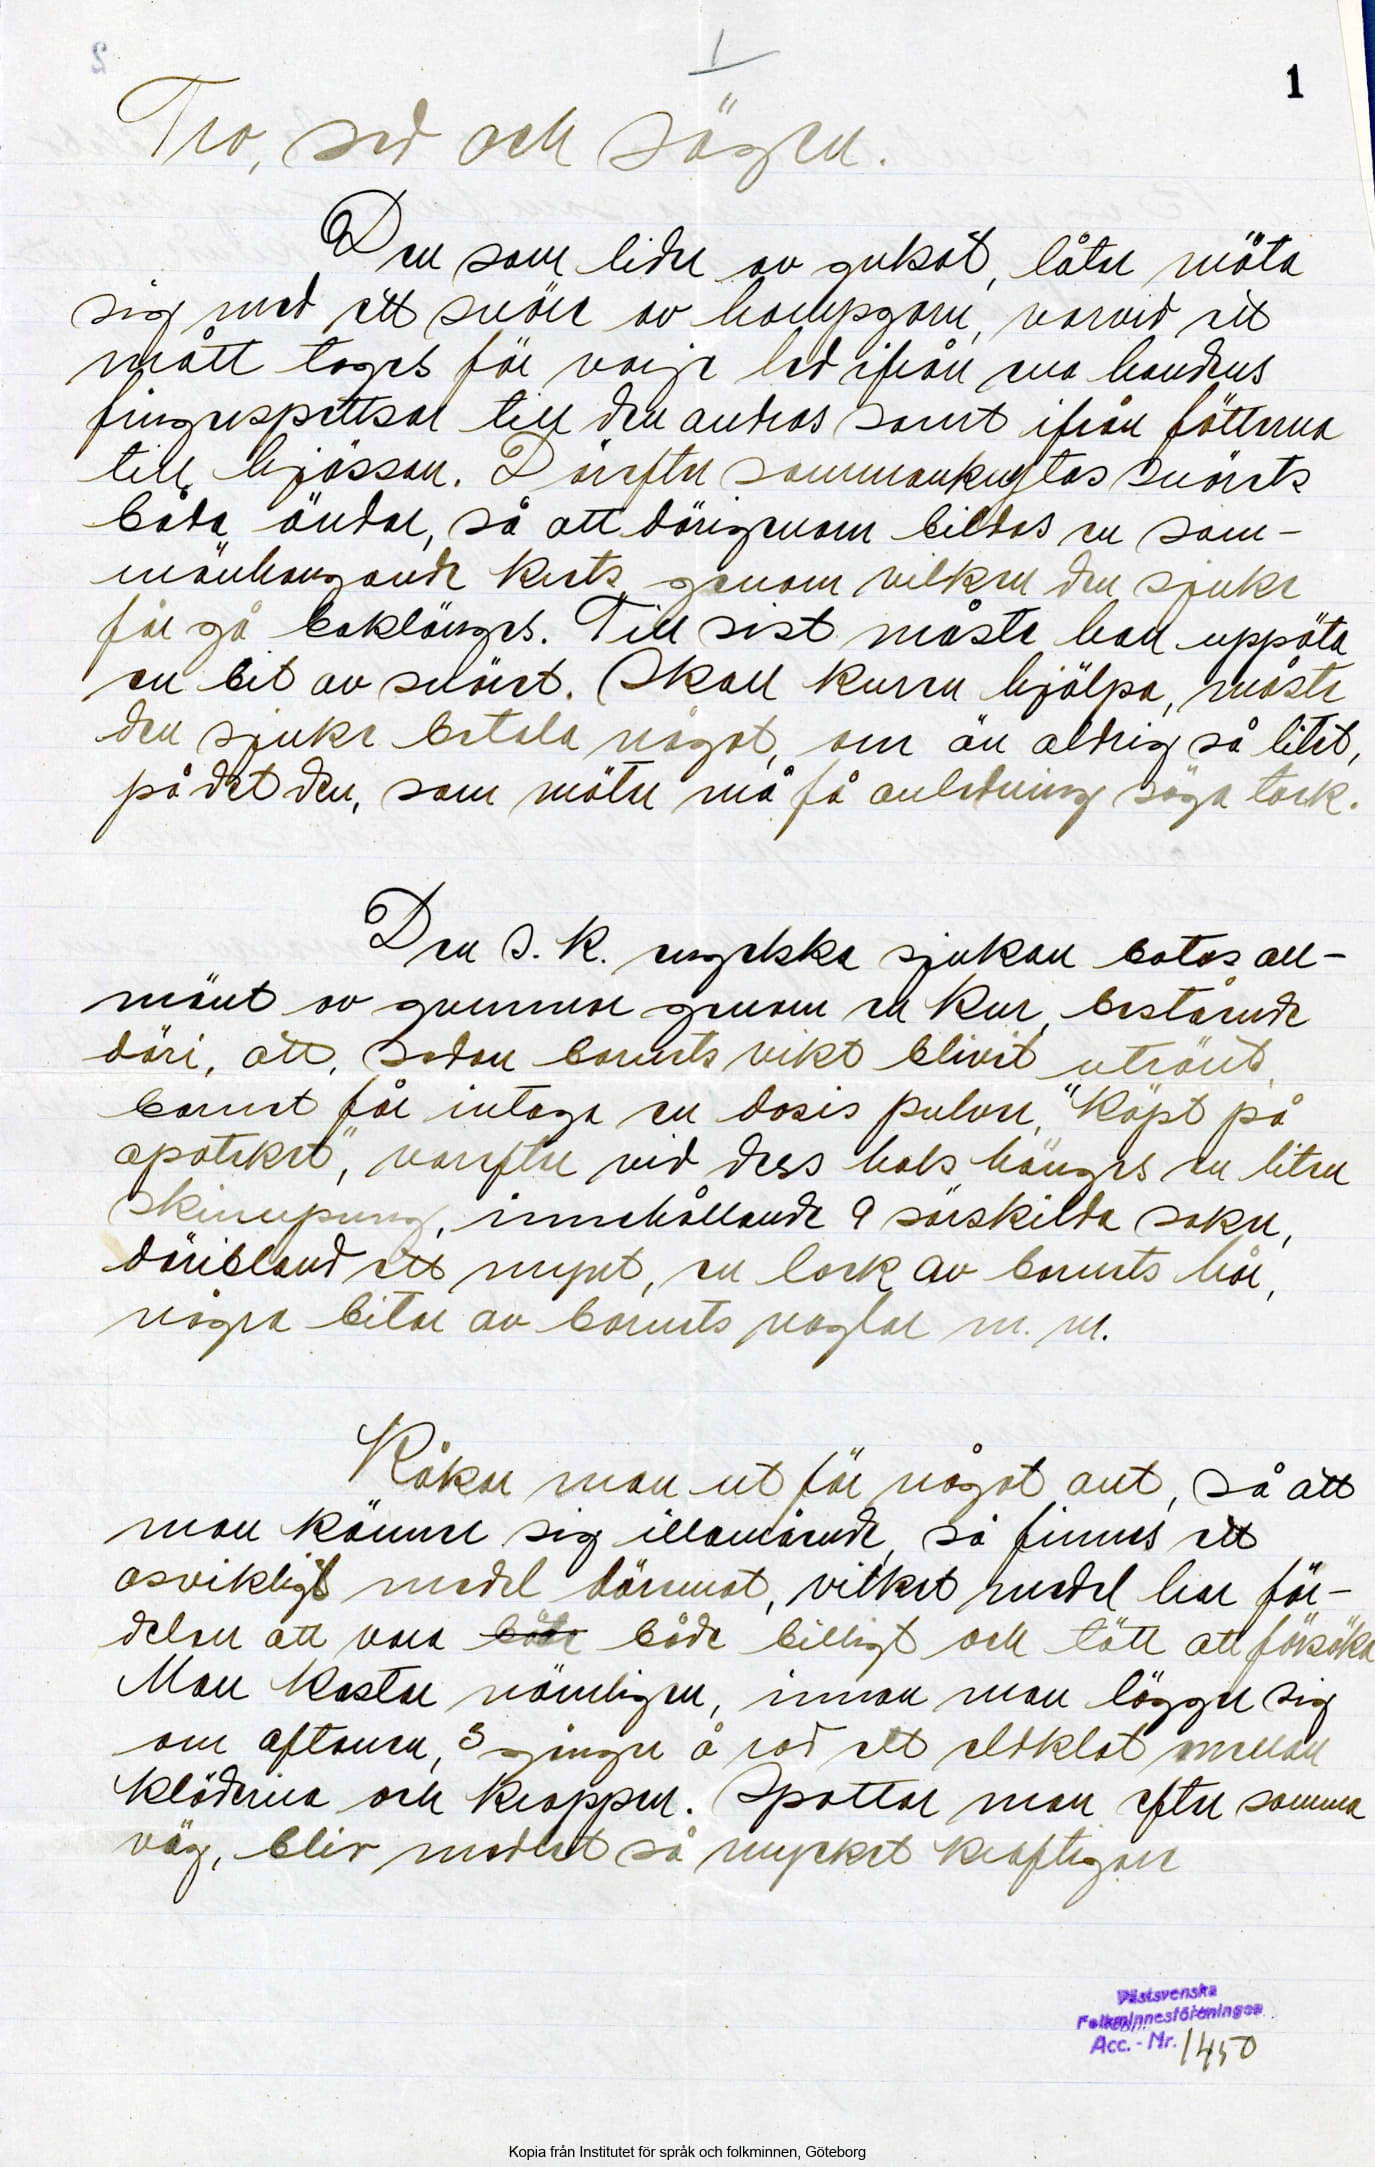 1
1
2
Tro, sed och sägen.
Den som lider av gulsot, låter mäta
sig med ett snöre av hampgarn, varvid ett
mått tages för varje led ifrån ena handens
fingerspetsar till den andras samt ifrån fötterna
till hjässan. Därefter sammanknytas snörets
båda ändar, så att därigenom bildas en sam-
manhängande krets, genom vilken den sjuke
får gå baklänges. Till sist måste han uppäta
en bit av snöret. Skall kuren hjälpa, måste
den sjuke betala något, om än aldrig så litet,
på det den, som mäter må få anledning säga tack.
Den s. k. engelska sjukan botas all-
mänt av gummor genom en kur, bestående
däri, att, sedan barnets vikt blivit utrönt,
barnet får intaga en dosis pulver, "köpt på
apoteket", varefter vid dess hals hänges en liten
skinnpung, innehållande 9 särskilda saker,
däribland ett mynt, en lock av barnets hår,
några bitar av barnets naglar m. m.
Råkar man ut för något ont, så att
man känner sig illamående, så finnes ett
osvikligt medel däremot, vilket medel har för-
delen att vara både både billigt och lätt att försöka
Man kastar nämligen, innan man lägger sig
om aftonen, 3 gånger å rad ett eldklot mellan
kläderna och kroppen. Spottar man efter samma
väg, blir medlet så mycket kraftigare
Västsvenska
Folkminnesföreningen
Acc. - Nr. 1450
Kopia från Institutet för språk och folkminnen, Göteborg